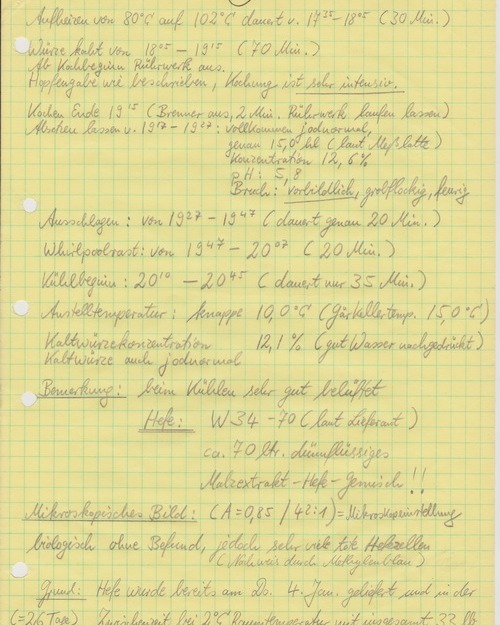 Aufheizen von 80°C auf 102°C dauert v. 17³⁵-18⁰⁵ (30 Min.)
Würze kocht von 18⁰⁵ - 19¹⁵ (70 Min.)
Ab Kochbeginn Rührwerk aus.
Hopfengabe wie beschrieben, Kochung ist sehr intensiv.
Kochen Ende 19¹⁵ (Brenner aus, 2 Min. Rührwerk laufen lassen)
Absetzen lassen v. 19¹⁷ - 19²⁷: vollkommen jodnormal,
genau 15,0 hl (laut Meßlatte)
Konzentration 12,6%
pH: 5,8
Bruch: vorbildlich, grobflockig, feurig
Ausschlagen: von 19²⁷ - 19⁴⁷ (dauert genau 20 Min.)
Whirlpoolrast: von 19⁴⁷ - 20⁰⁷ (20 Min.)
Kühlbeginn: 20¹⁰ - 20⁴⁵ (dauert nur 35 Min.)
Anstelltemperatur: knappe 10,0°C (Gärkellertemp. 15,0°C)
Kaltwürzekonzentration 12,1% (gut Wasser nachgedrückt)
Kaltwürze auch jodnormal
Bemerkung: beim Kühlen sehr gut belüftet
Hefe: W34-70 (laut Lieferant)
ca. 70 ltr. dünnflüssiges
Malzextrakt-Hefe-Gemisch!!
Mikroskopisches Bild: (A=0,85 / 42:1) = Mikroskopeinstellung
biologisch ohne Befund, jedoch sehr viele tote Hefezellen
(Nachweis durch Methylenblau)
Grund: Hefe wurde bereits am Do. 4. Jan. geliefert und in der
Zwischenzeit bei 2°C Raumtemperatur mit insgesamt 33